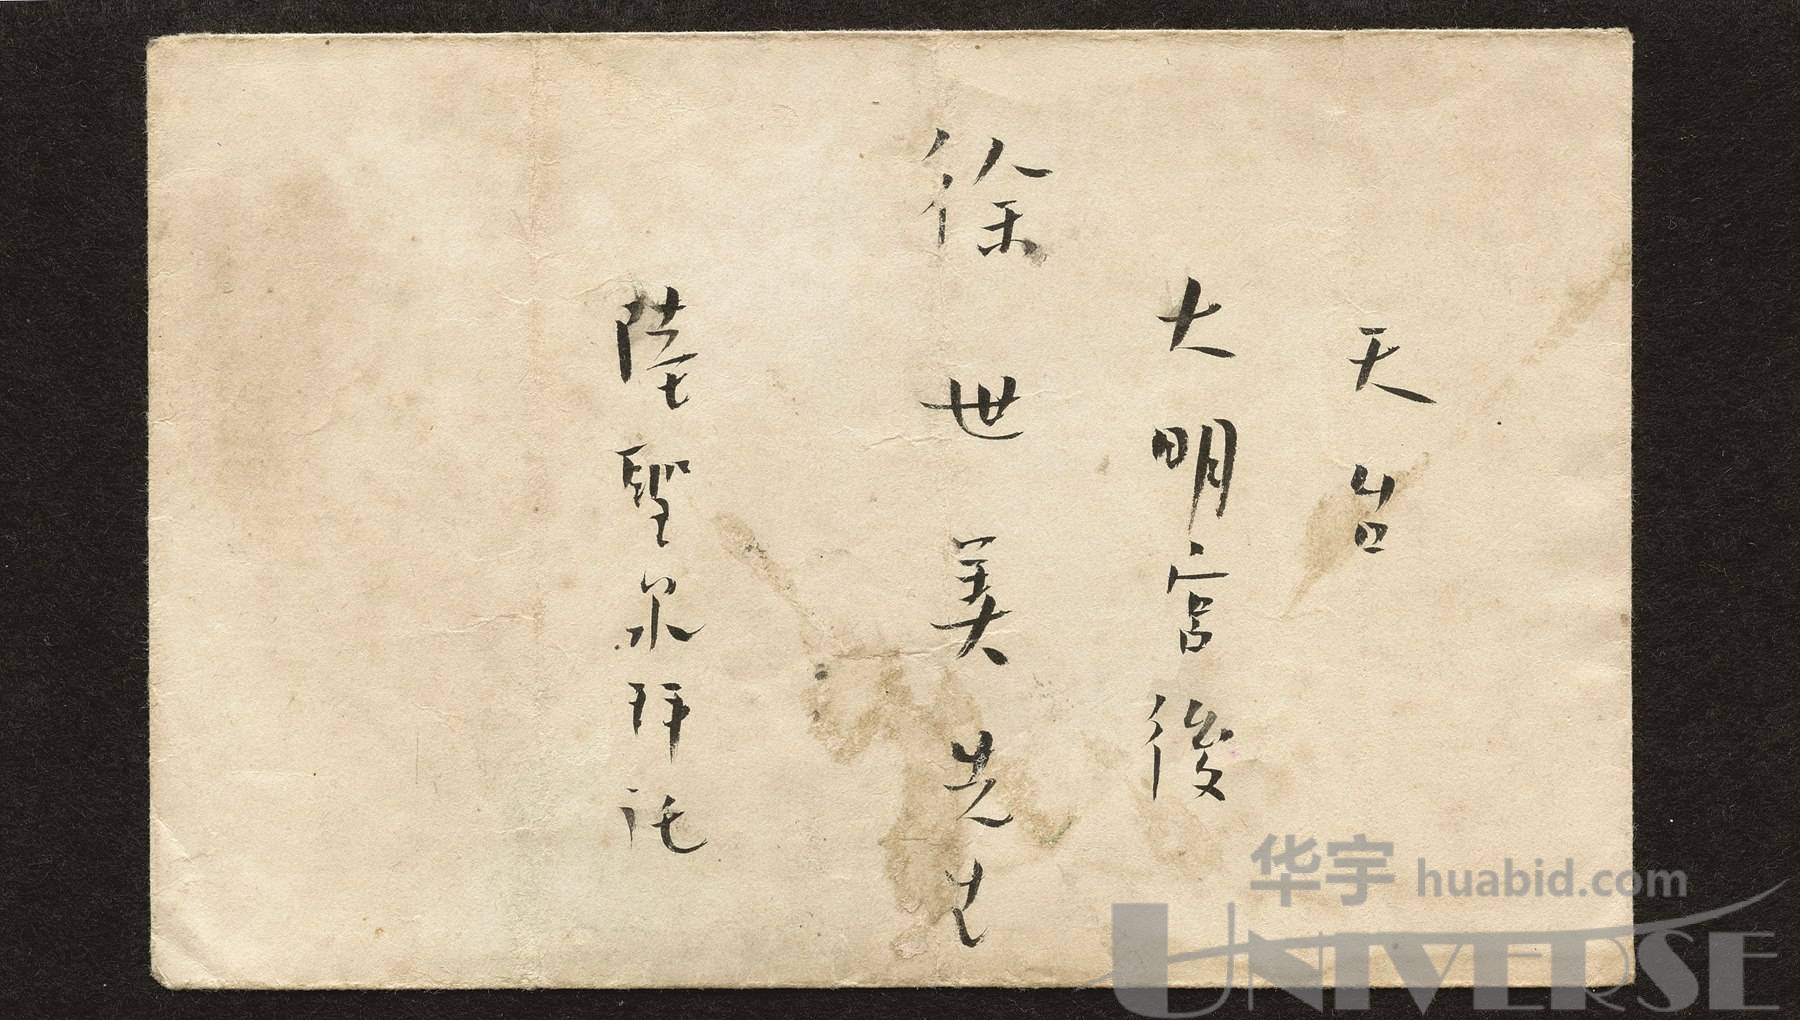 天台
大明宫後
徐世美先生
陸聖泉拜託
华宇 huabid.com
UNIVERSE